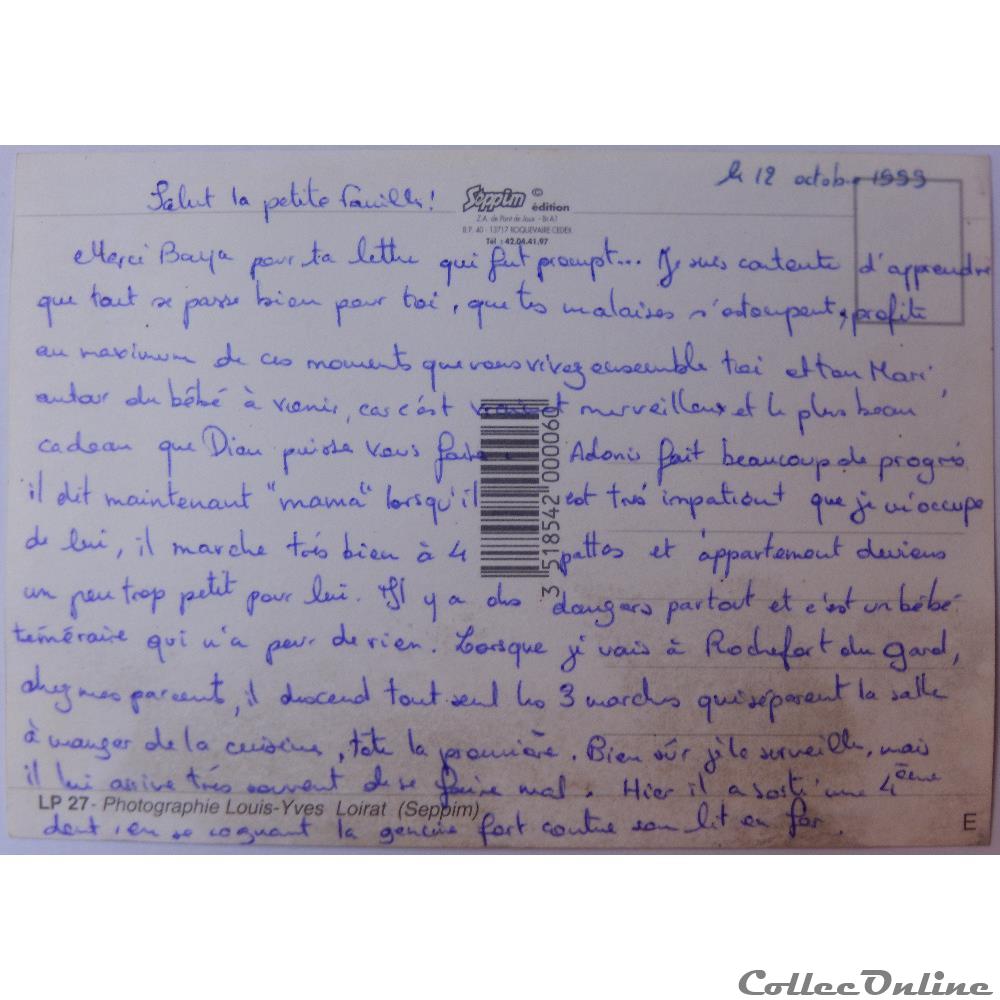 le 12 octobre 1999
Salut la petite famille!
Seppim © édition
Z.A. de Pont de Joux - Bt A1
B.P. 40 - 13717 ROQUEVAIRE CEDEX
Tél : 42.04.41.97
Merci Baya pour ta lettre qui fut prompt... Je suis contente d'apprendre
que tout se passe bien pour toi, que tes malaises s'estompent, profite
au maximum de ces moments que vous vivez ensemble toi et ton Mari
autour du bébé à venir, car c'est vraiment merveilleux et le plus beau
cadeau que Dieu puisse vous faire. Adonis fait beaucoup de progrès
il dit maintenant "mama" lorsqu'il est très impatient que je m'occupe
de lui, il marche très bien à 4 pattes et l'appartement deviens
un peu trop petit pour lui. Il y a des dangers partout et c'est un bébé
téméraire qui n'a peur de rien. Lorsque je vais à Rochefort du Gard,
chez mes parcent, il descend tout seul les 3 marches qui séparent la salle
à manger de la cuisine, tête la première. Bien sûr je le surveille, mais
il lui arrive très souvent de se faire mal. Hier il a sorti une 4ème
dent, en se cognant la gencive fort contre son lit en fer.
LP 27 - Photographie Louis-Yves Loirat (Seppim)
E
3 518542 000060
CollecOnline